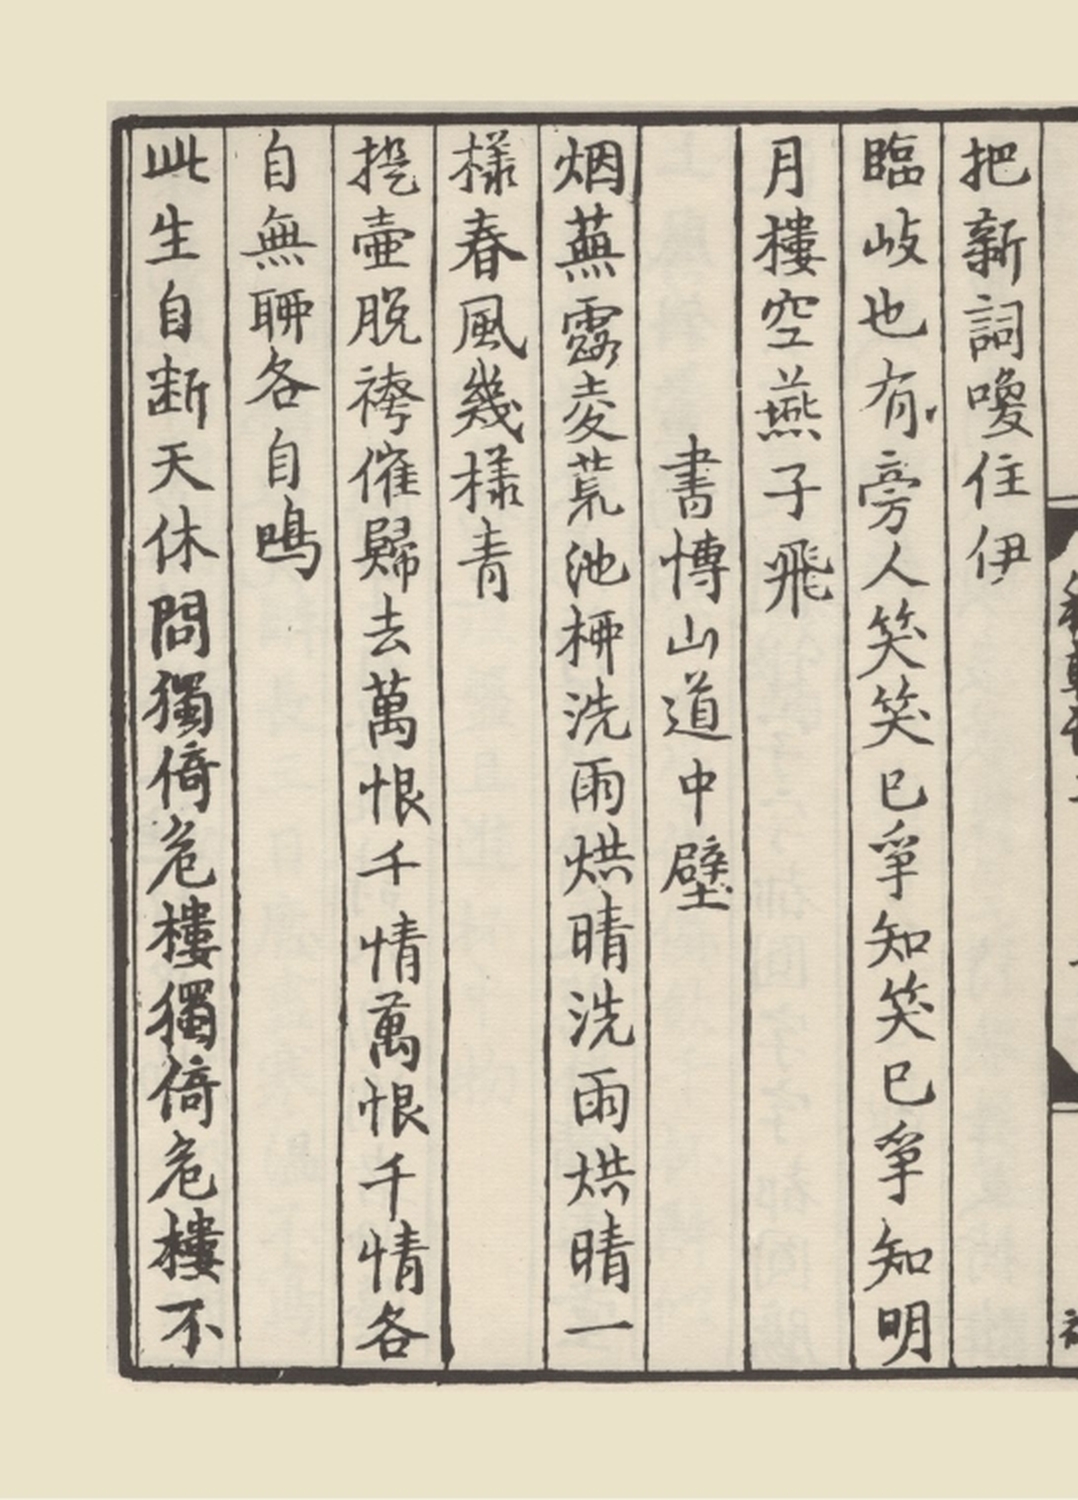 把新詞喚住伊
臨岐也有旁人笑笑已爭知笑已爭知明
月樓空燕子飛
書博山道中壁
烟蕪露夌荒池栁洗雨烘晴洗雨烘晴一
樣春風幾樣青
提壺脫袴催歸去萬恨千情萬恨千情各
自無聊各自鳴
此生自断天休問獨倚危樓獨倚危樓不